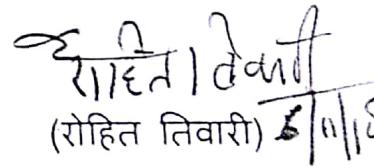 रोहित तिवारी
(रोहित तिवारी)